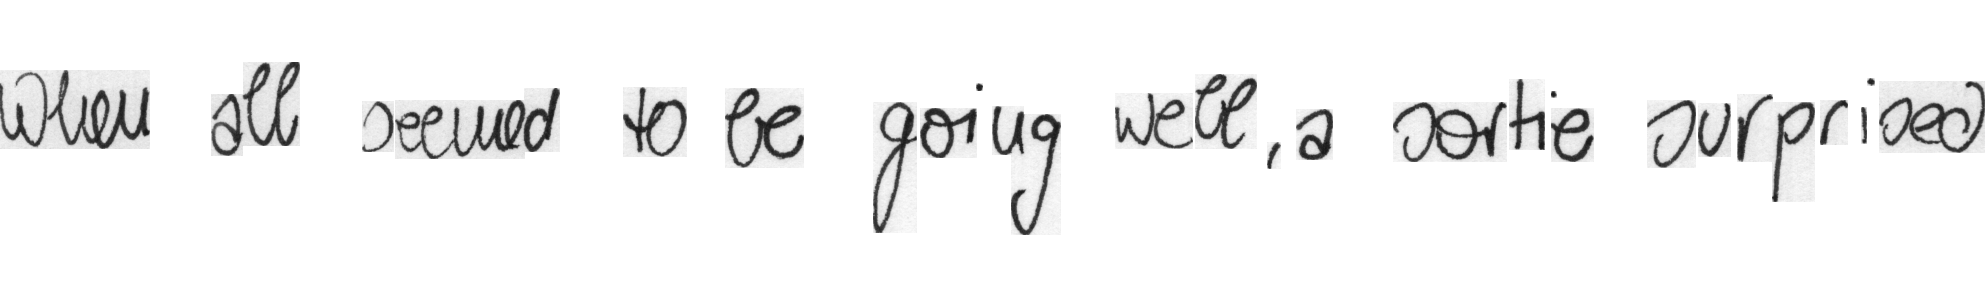 when all seemed to be going well, a sortie surprised